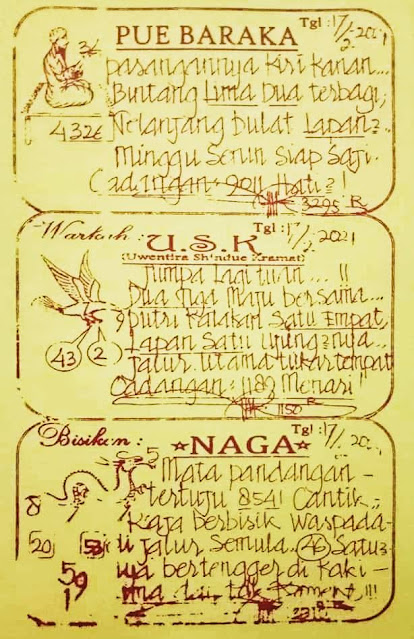 PUE BARAKA
Tgl : 17/2. 2021
pasangannya Kiri Kanan...
Bintang Lima Dua terbagi,
4326
Telanjang bulat Lapan2..
Minggu Senin Siap Saji.
Cadangan: 9011 Hati2!
3295 R
Warkah :
U.S.K
Tgl : 17/2. 2021
(Uwentira Shindue Kramat)
Jumpa Lagi tuan ... !!
Dua Tiga Maju bersama...
putri Katakan Satu Empat,
43 2
Lapan Satu ujung2nya..
Jalur Utama tukar tempat
Cadangan : 1182 Menari!
1150 R
Bisikan :
NAGA
Tgl : 17/2. 2021
Mata pandangan -
tertuju 8541 Cantik..
8
Raja berbisik Waspada-
20
i Jalur Semula. 46 Satu2
59
ya bertengger di Kaki -
19